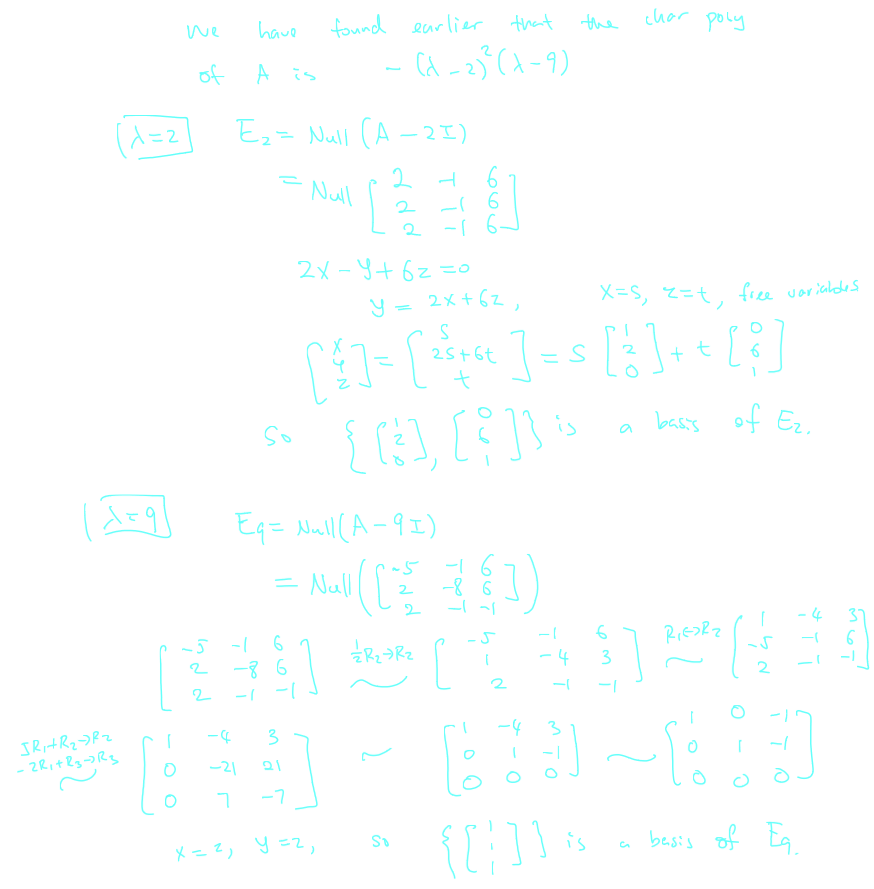 We have found earlier that the char poly
of A is - (λ-2)²(λ-9)
λ=2 E₂ = Null (A - 2I)
= Null [2 -1 6; 2 -1 6; 2 -1 6]
2x - y + 6z = 0
y = 2x + 6z, x=s, z=t, free variables
[x; y; z] = [s; 2s+6t; t] = s [1; 2; 0] + t [0; 6; 1]
So { [1; 2; 0], [0; 6; 1] } is a basis of E₂.
λ=9 E₉ = Null(A - 9I)
= Null([-5 -1 6; 2 -8 6; 2 -1 -1])
[-5 -1 6; 2 -8 6; 2 -1 -1] ½R₂→R₂ ~ [-5 -1 6; 1 -4 3; 2 -1 -1] R₁↔R₂ ~ [1 -4 3; -5 -1 6; 2 -1 -1]
5R₁+R₂→R₂ -2R₁+R₃→R₃ ~ [1 -4 3; 0 -21 21; 0 7 -7] ~ [1 -4 3; 0 1 -1; 0 0 0] ~ [1 0 -1; 0 1 -1; 0 0 0]
x=z, y=z, so { [1; 1; 1] } is a basis of E₉.